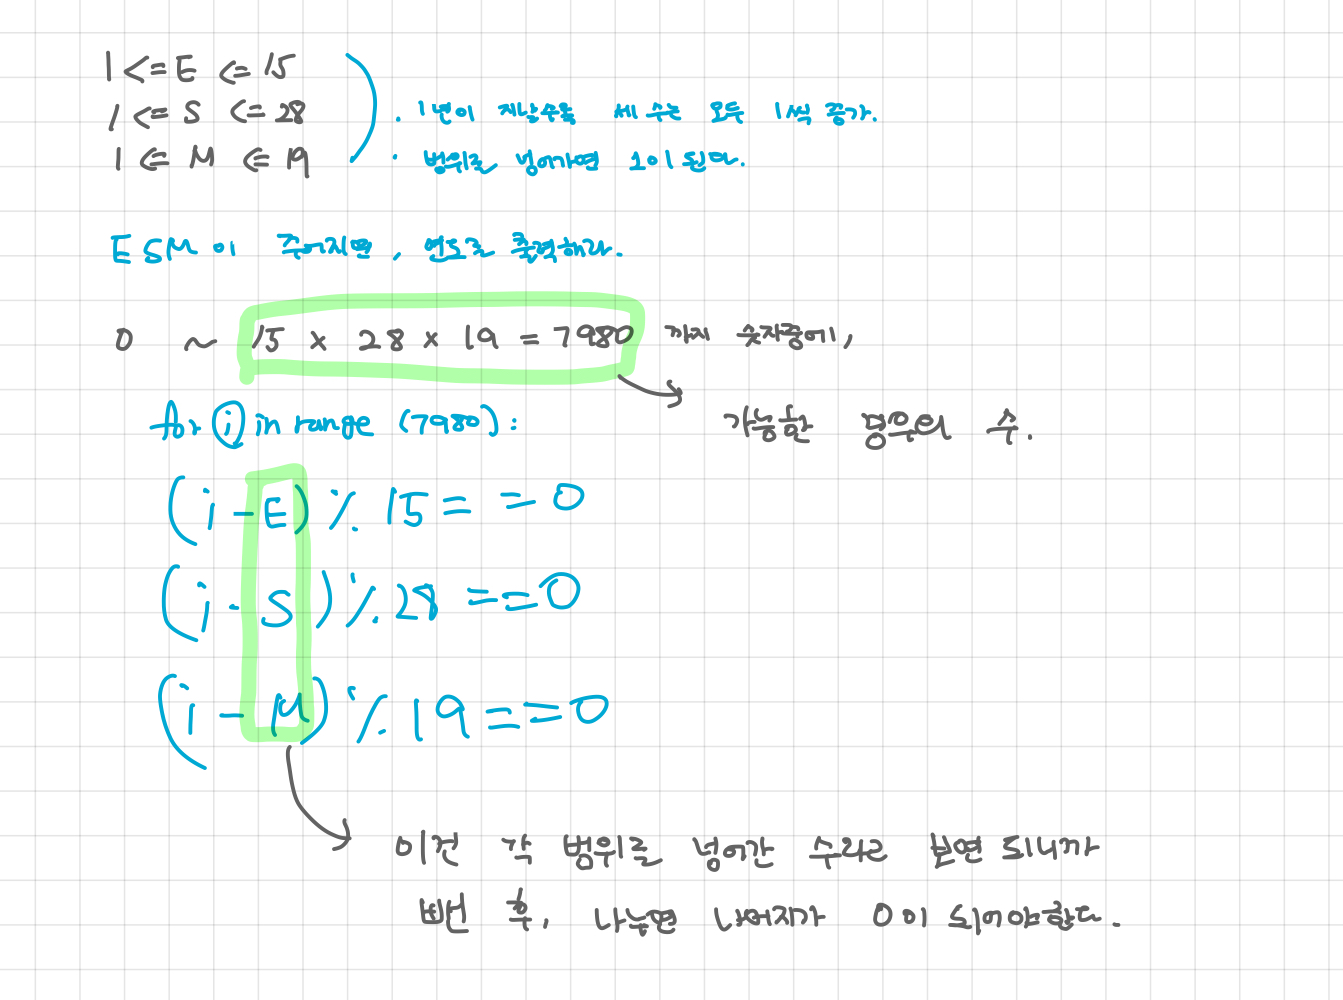 1 <= E <= 15
1 <= S <= 28
1 <= M <= 19
· 1년이 지날수록 세 수는 모두 1씩 증가.
· 범위를 넘어가면 1이 된다.
E S M 이 주어지면, 연도를 출력해라.
0 ~ 15 x 28 x 19 = 7980 까지 숫자중에,
가능한 경우의 수.
for i in range (7980):
(i - E) % 15 == 0
(i - S) % 28 == 0
(i - M) % 19 == 0
이건 각 범위를 넘어간 수라고 보면 되니까
뺀 후, 나누면 나머지가 0이 되어야한다.